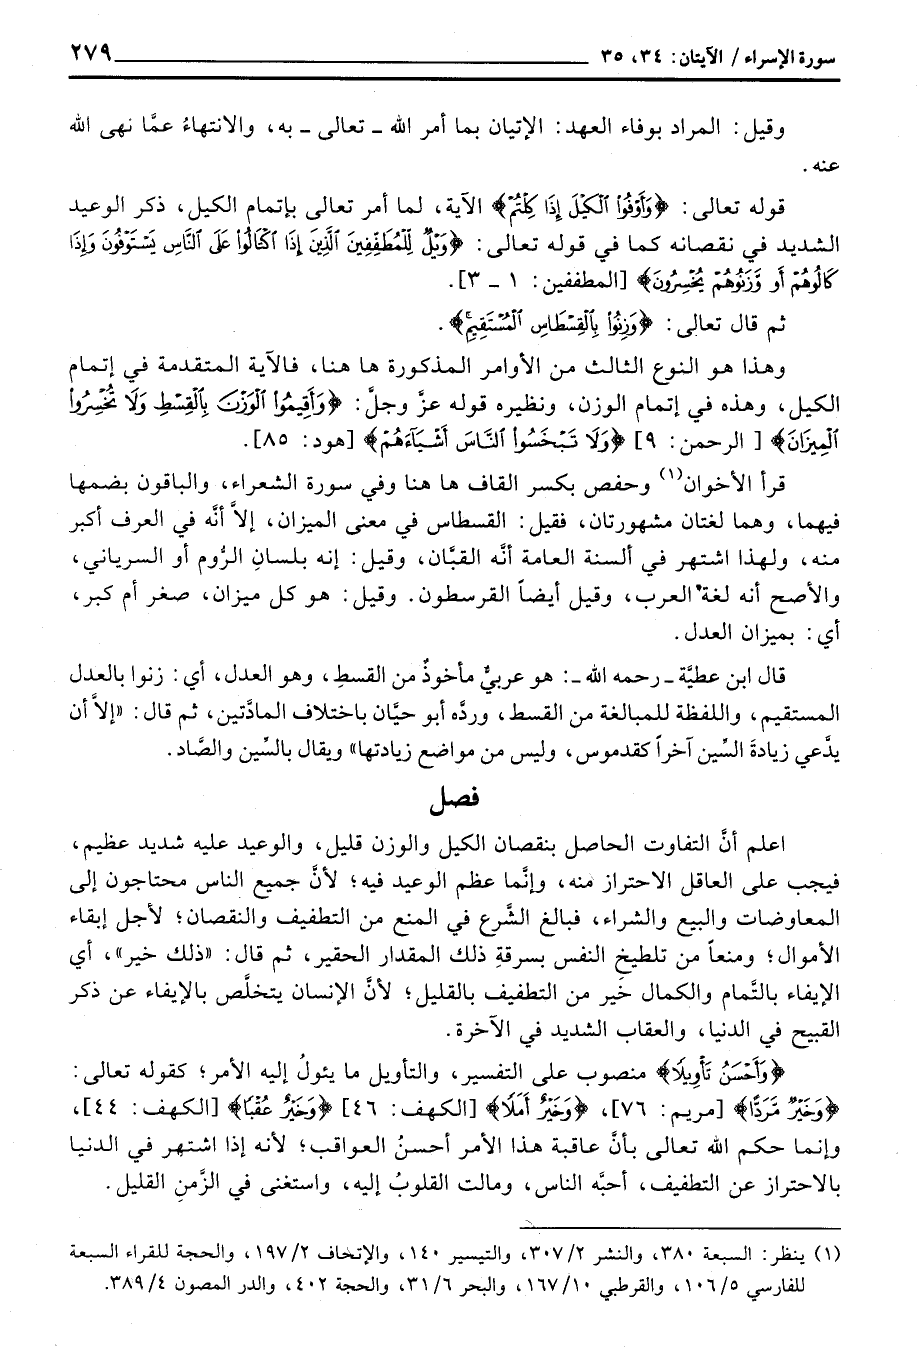 سورة الإسراء / الآيتان: ٣٤، ٣٥ ٢٧٩
وقيل: المراد بوفاء العهد: الإتيان بما أمر الله ـ تعالى ـ به، والانتهاءُ عمَّا نهى الله
عنه.
قوله تعالى: ﴿وَأَوْفُوا۟ ٱلْكَيْلَ إِذَا كِلْتُمْ﴾ الآية، لما أمر تعالى بإتمام الكيل، ذكر الوعيد
الشديد في نقصانه كما في قوله تعالى: ﴿وَيْلٌ لِّلْمُطَفِّفِينَ ٱلَّذِينَ إِذَا ٱكْتَالُوا۟ عَلَى ٱلنَّاسِ يَسْتَوْفُونَ وَإِذَا
كَالُوهُمْ أَو وَّزَنُوهُمْ يُخْسِرُونَ﴾ [المطففين: ١ ـ ٣].
ثم قال تعالى: ﴿وَزِنُوا۟ بِٱلْقِسْطَاسِ ٱلْمُسْتَقِيمِ ۚ﴾.
وهذا هو النوع الثالث من الأوامر المذكورة ها هنا، فالآية المتقدمة في إتمام
الكيل، وهذه في إتمام الوزن، ونظيره قوله عزَّ وجلَّ: ﴿وَأَقِيمُوا۟ ٱلْوَزْنَ بِٱلْقِسْطِ وَلَا تُخْسِرُوا۟
ٱلْمِيزَانَ﴾ [ الرحمن: ٩] ﴿وَلَا تَبْخَسُوا۟ ٱلنَّاسَ أَشْيَآءَهُمْ﴾ [هود: ٨٥].
قرأ الأخوان(١) وحفص بكسر القاف ها هنا وفي سورة الشعراء، والباقون بضمها
فيهما، وهما لغتان مشهورتان، فقيل: القسطاس في معنى الميزان، إلاَّ أنَّه في العرف أكبر
منه، ولهذا اشتهر في ألسنة العامة أنَّه القبَّان، وقيل: إنه بلسانِ الرُّوم أو السرياني،
والأصح أنه لغة العرب، وقيل أيضاً القرسطون. وقيل: هو كل ميزان، صغر أم كبر،
أي: بميزان العدل.
قال ابن عطيَّة ـ رحمه الله ـ: هو عربيٌّ مأخوذٌ من القسطِ، وهو العدل، أي: زنوا بالعدل
المستقيم، واللفظة للمبالغة من القسط، وردَّه أبو حيَّان باختلاف المادَّتين، ثم قال: «إلاَّ أن
يدَّعي زيادةَ السِّين آخراً كقدموس، وليس من مواضع زيادتها» ويقال بالسِّين والصَّاد.
فصل
اعلم أنَّ التفاوت الحاصل بنقصان الكيل والوزن قليل، والوعيد عليه شديد عظيم،
فيجب على العاقل الاحتراز منه، وإنَّما عظم الوعيد فيه؛ لأنَّ جميع الناس محتاجون إلى
المعاوضات والبيع والشراء، فبالغ الشَّرع في المنع من التطفيف والنقصان؛ لأجل إبقاء
الأموال؛ ومنعاً من تلطيخ النفس بسرقةِ ذلك المقدار الحقير، ثم قال: «ذلك خير»، أي
الإيفاء بالتَّمام والكمال خَير من التطفيف بالقليل؛ لأنَّ الإنسان يتخلَّص بالإيفاء عن ذكر
القبيح في الدنيا، والعقاب الشديد في الآخرة.
﴿وَأَحْسَنُ تَأْوِيلًا﴾ منصوب على التفسير، والتأويل ما يئولُ إليه الأمر؛ كقوله تعالى:
﴿وَخَيْرٌ مَّرَدًّا﴾ [مريم: ٧٦]، ﴿وَخَيْرٌ أَمَلًا﴾ [الكهف: ٤٦] ﴿وَخَيْرٌ عُقْبًا﴾ [الكهف: ٤٤]،
وإنما حكم الله تعالى بأنَّ عاقبة هذا الأمر أحسنُ العواقب؛ لأنه إذا اشتهر في الدنيا
بالاحتراز عن التطفيف، أحبَّه الناس، ومالت القلوبُ إليه، واستغنى في الزَّمنِ القليل.
(١) ينظر: السبعة ٣٨٠، والنشر ٣٠٧/٢، والتيسير ١٤٠، والإتحاف ١٩٧/٢، والحجة للقراء السبعة
للفارسي ١٠٦/٥، والقرطبي ١٦٧/١٠، والبحر ٣١/٦، والحجة ٤٠٢، والدر المصون ٣٨٩/٤.